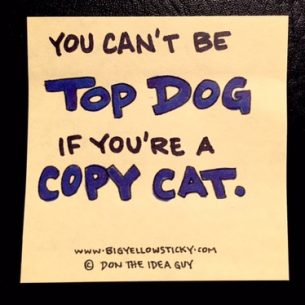 YOU CAN'T BE
TOP DOG
IF YOU'RE A
COPY CAT.
WWW.BIGYELLOWSTICKY.COM
© DON THE IDEA GUY